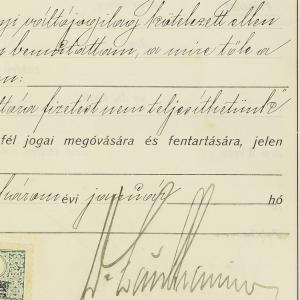 váltójogilag kötelezett ellen
bemutattam, a mire tőle a
fizetést nem teljesíthetünk"
fél jogai megóvására és fentartására, jelen
három évi január hó